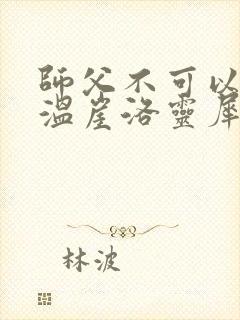 師父不可以
溫崖洛靈犀
林波